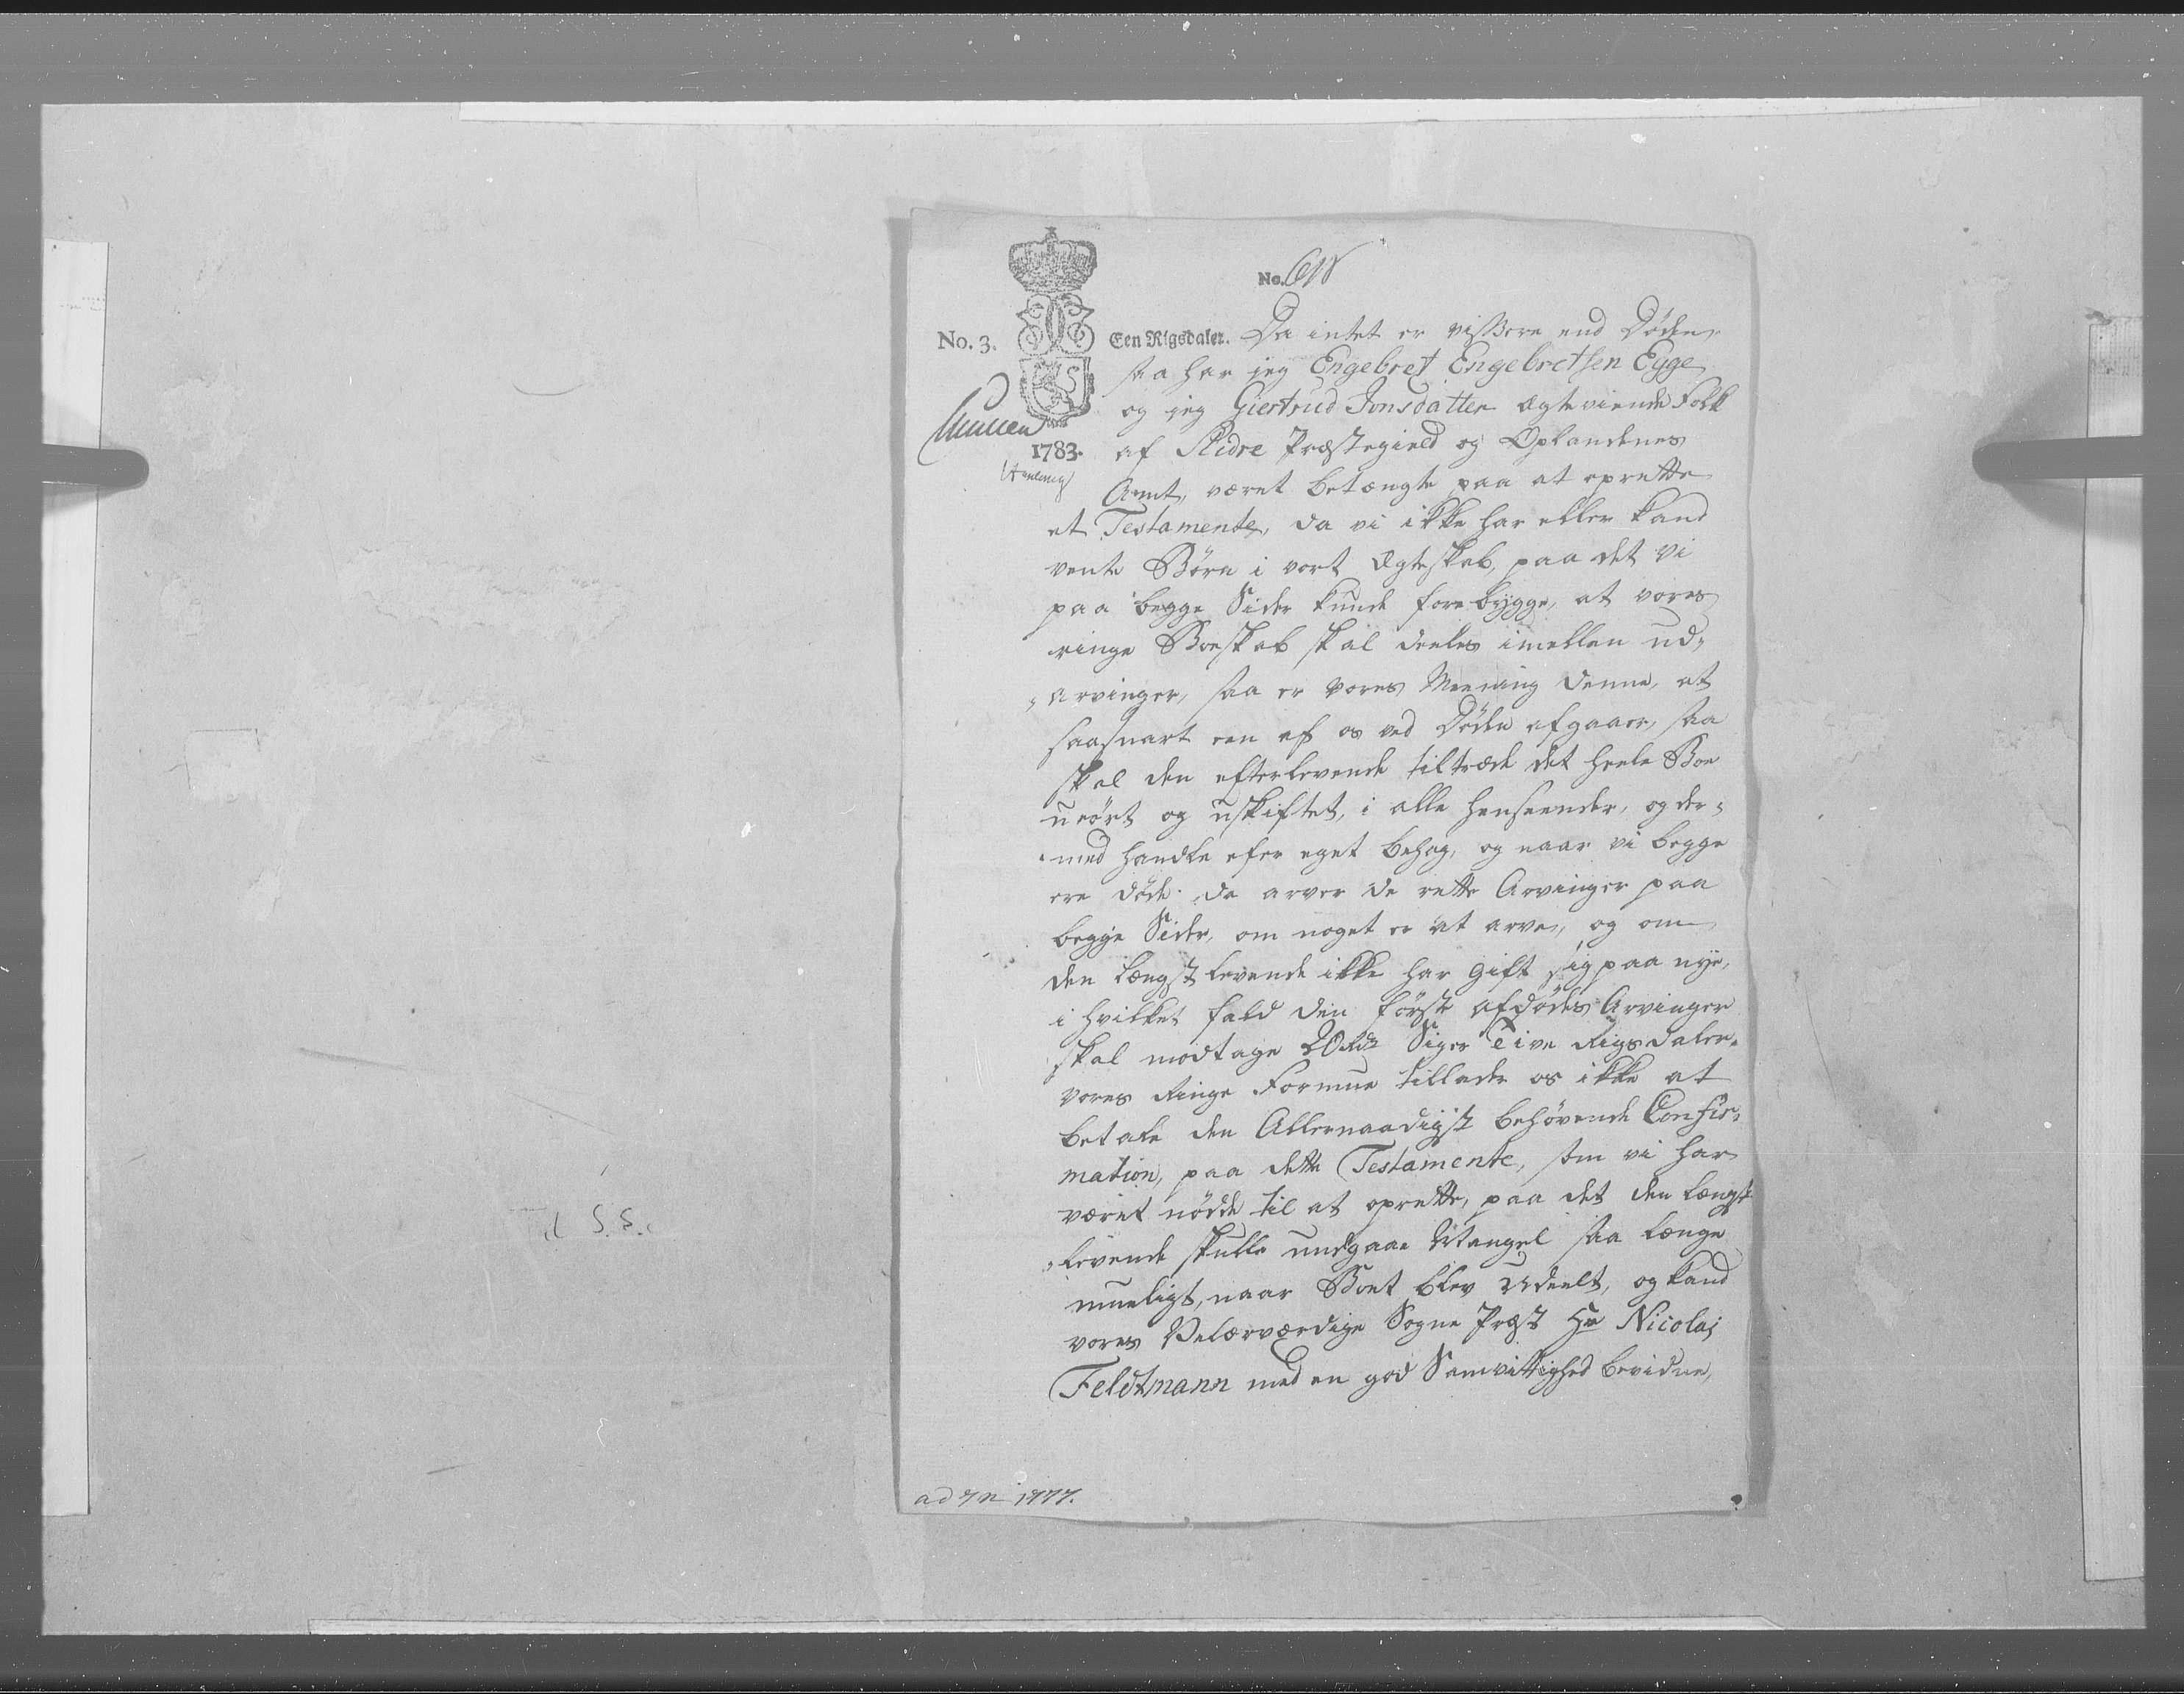 No. 618
No. 3. Een Rigsdaler. Da intet er vissere end Døden,
saa har jeg Engebret Engebretsen Egge
og jeg Giertrud Jonsdatter Ægteviende Folk
1783. af Slidre Præstegield og Oplandenes
Amt, været betængte paa at oprette
et Testamente, da vi ikke har eller kand
vente Børn i vort Ægteskab, paa det vi
paa begge Sider kunde forebygge, at vores
ringe Boeskab skal deeles imellem ud-
„arvinger, saa er vores Meening denne, at
saasnart een af os ved Døden afgaaer, saa
skal den efterlevende tiltræde det heele Boe
urört og uskiftet, i alle henseender, og der-
„med handle efter eget behag, og naar vi begge
ere döde. da arver de rette Arvinger paa
begge Sider, om noget er at arve, og om
den længst levende ikke har gift sig paa nye,
i hvilket fald den først afdødes Arvinger
skal modtage 20 Rdr Siger Tive Rigsdaler.
vores Ringe Formue tillader os ikke at
betale den Allernaadigst behøvende Confir-
mation, paa dette Testamente, som vi har
været nödde til at oprette, paa det den længst
„levende skulle undgaae Mangel saa længe
mueligt, naar Boet blev Udeelt, og kand
vores Velærværdige Sogne Præst Hr Nicolaj
Feldtmann med en god Samvittighed bevidne,
ad 1777.
Til S.S.